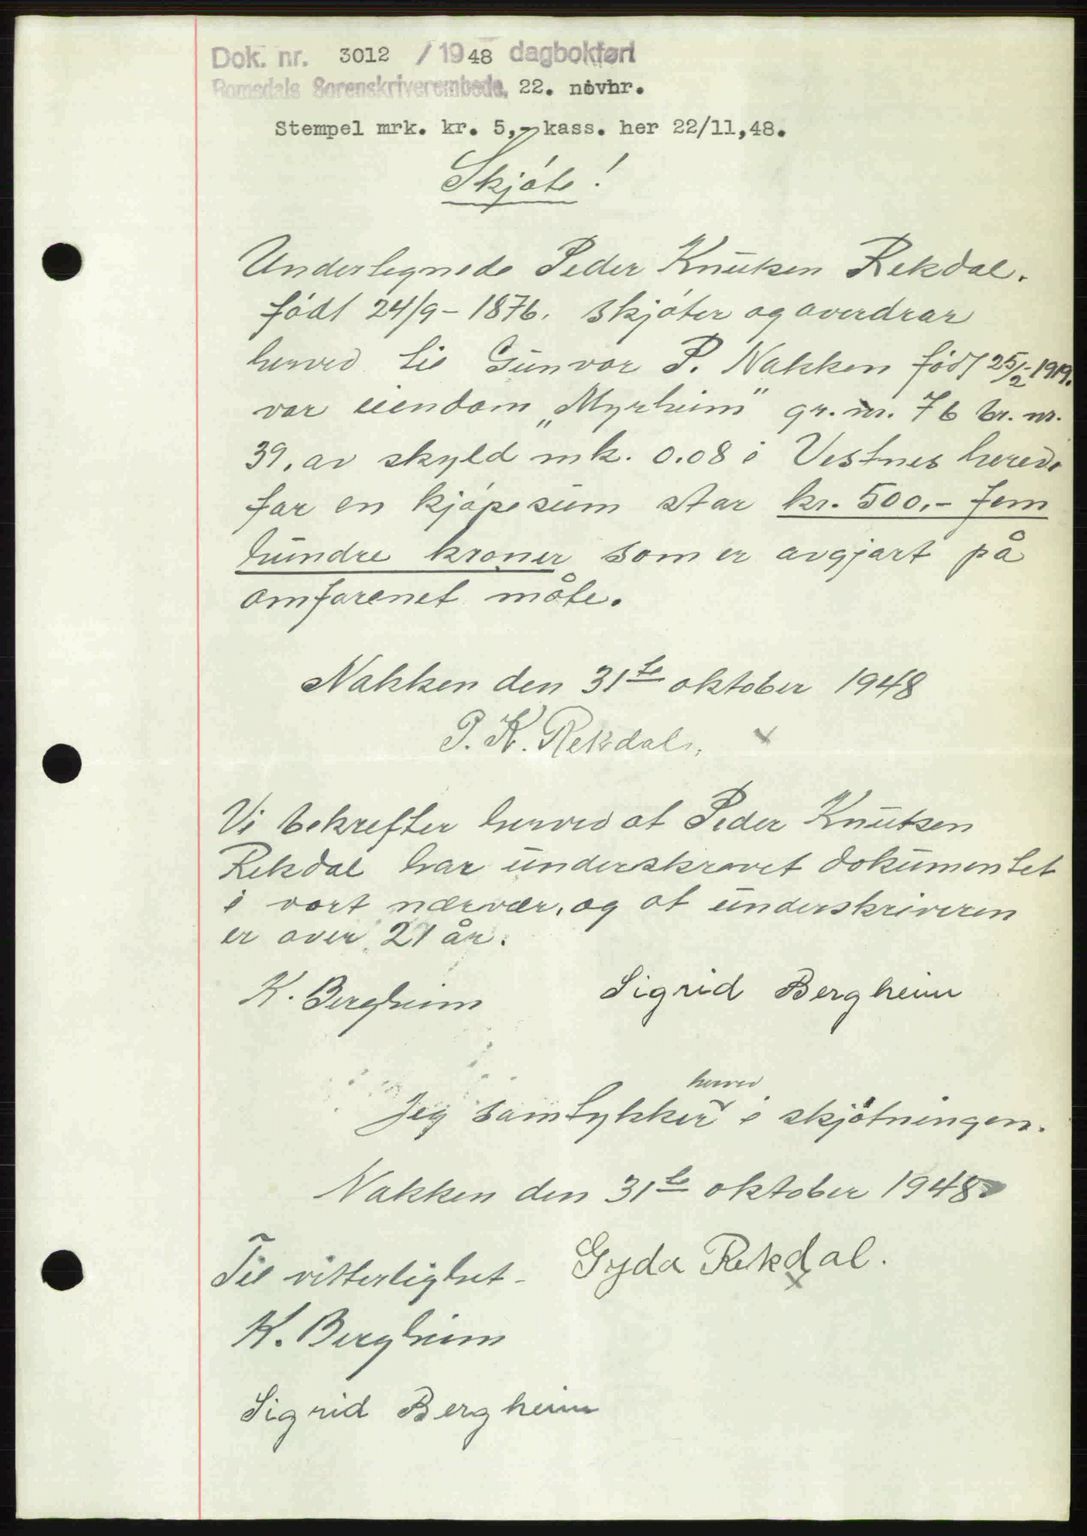 Dok. nr. 3012 / 1948 dagbokført
Romsdals Sorenskriverembede, 22. novbr.
Stempel mrk. kr. 5,- kass. her 22/11,48.
Skjöte!
Underlegnede Peder Knutsen Rekdal.
född 24/9-1876. skjöter og overdrar
herved til Gunvor P. Nakken född 25/2-1919.
vor eiendom „Myrheim" gr. nr. 76 br. nr.
39. av skyld mk. 0.08 i Vestnes herede
for en kjöpesum stor kr. 500,- fem
hundre kroner som er avgjort på
omforenet måte.
Nakken den 31te oktober 1948
P. K. Rekdal.
Vi bekrefter herved at Peder Knutsen
Rekdal har underskrevet dokumentet
i vort nærvær, og at underskriveren
er over 21 år.
K. Bergheim Sigrid Bergheim
herved
Jeg samtykker i skjötningen.
Nakken den 31te oktober 1948
Til vitterlighet- Gyda Rekdal.
K. Bergheim
Sigrid Bergheim